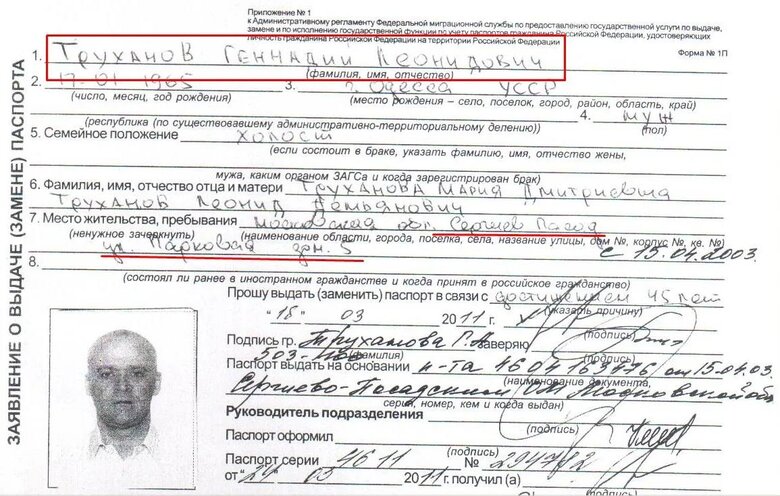 Приложение № 1
к Административному регламенту Федеральной миграционной службы по предоставлению государственной услуги по выдаче,
замене и по исполнению государственной функции по учету паспортов гражданина Российской Федерации, удостоверяющих
личность гражданина Российской Федерации на территории Российской Федерации
Форма № 1П
ЗАЯВЛЕНИЕ О ВЫДАЧЕ (ЗАМЕНЕ) ПАСПОРТА
1. Труханов Геннадий Леонидович
(фамилия, имя, отчество)
2. 17.01 1965 3. г. Одесса УССР
(число, месяц, год рождения) (место рождения – село, поселок, город, район, область, край)
4. муж
(республика (по существовавшему административно-территориальному делению)) (пол)
5. Семейное положение холост
(если состоит в браке, указать фамилию, имя, отчество жены,
мужа, каким органом ЗАГСа и когда зарегистрирован брак)
6. Фамилия, имя, отчество отца и матери Труханова Мария Дмитриевна
Труханов Леонид Демьянович
7. Место жительства, пребывания Московская обл. Сергиев Посад
(ненужное зачеркнуть) (наименование области, города, поселка, села, название улицы, дом №, корпус №, кв. №)
ул. Парковая дом. 5 с 15.04.2003.
8.
(состоял ли ранее в иностранном гражданстве и когда принят в российское гражданство)
Прошу выдать (заменить) паспорт в связи с достижением 45 лет
(указать причину)
"18" 03 2011 г.
(подпись)
Подпись гр. Труханова Г.Л. заверяю
(фамилия) (подпись)
503-
Паспорт выдан на основании п-та 4604163476 от 15.04.03.
(наименование документа,
Сергиево-Посадским ОМ Московской обл
серия, номер, кем и когда выдан)
Руководитель подразделения
(подпись)
Паспорт оформил
(подпись)
Паспорт серии 4611 № 294782
от "24" 03 2011 г. получил (а)
(подпись)